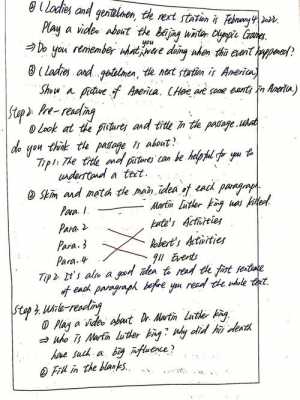 ③ (Ladies and gentlemen, the next station is February 4, 2022.
Play a video about the Beijing Winter Olympic Games.
⇒ Do you remember what you were doing when this event happened?
④ (Ladies and gentlemen, the next station is America)
Show a picture of America. (Here are some events in America)
Step 2. Pre-reading
① Look at the pictures and title in the passage. What
do you think the passage is about?
Tip 1: The title and pictures can be helpful for you to
understand a text.
② Skim and match the main idea of each paragraph.
Para. 1 Martin Luther King was killed.
Para. 2 Kate's Activities
Para. 3 Robert's Activities
Para. 4 911 Events
Tip 2: It's also a good idea to read the first sentence
of each paragraph before you read the whole text.
Step 3. While-reading
① Play a video about Dr. Martin Luther King.
⇒ Who is Martin Luther King? Why did his death
have such a big influence?
② Fill in the blanks.